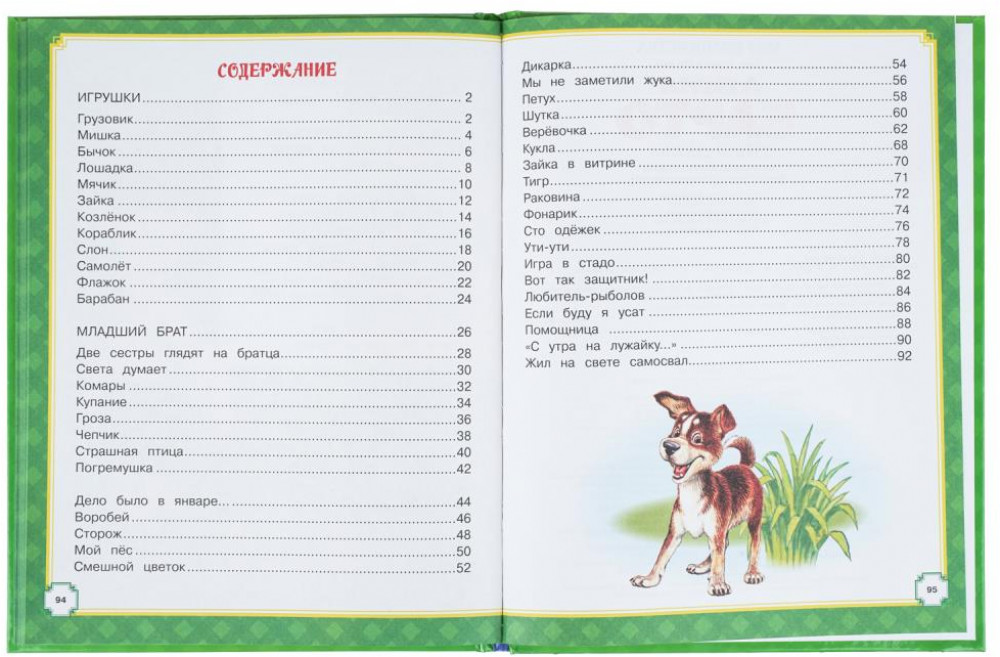 СОДЕРЖАНИЕ
ИГРУШКИ 2
Грузовик 2
Мишка 4
Бычок 6
Лошадка 8
Мячик 10
Зайка 12
Козлёнок 14
Кораблик 16
Слон 18
Самолёт 20
Флажок 22
Барабан 24
МЛАДШИЙ БРАТ 26
Две сестры глядят на братца 28
Света думает 30
Комары 32
Купание 34
Гроза 36
Чепчик 38
Страшная птица 40
Погремушка 42
Дело было в январе... 44
Воробей 46
Сторож 48
Мой пёс 50
Смешной цветок 52
94
Дикарка 54
Мы не заметили жука 56
Петух 58
Шутка 60
Верёвочка 62
Кукла 68
Зайка в витрине 70
Тигр 71
Раковина 72
Фонарик 74
Сто одёжек 76
Ути-ути 78
Игра в стадо 80
Вот так защитник! 82
Любитель-рыболов 84
Если буду я усат 86
Помощница 88
«С утра на лужайку...» 90
Жил на свете самосвал 92
95